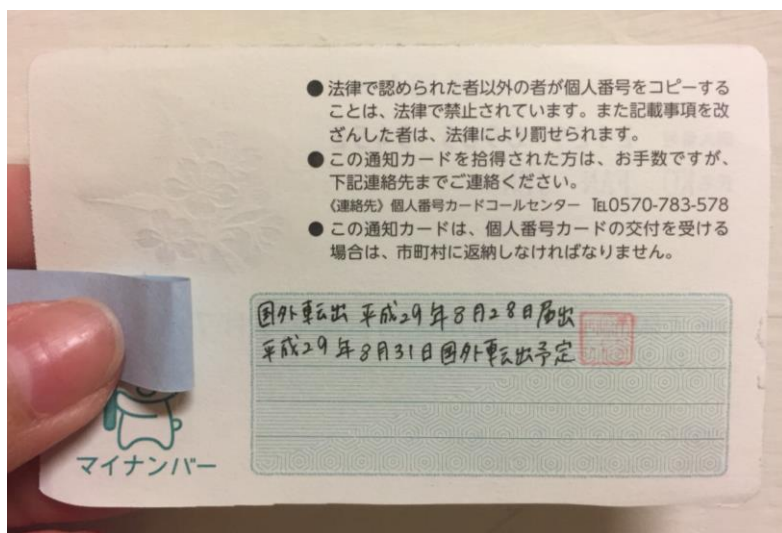 ● 法律で認められた者以外の者が個人番号をコピーする
ことは、法律で禁止されています。また記載事項を改
ざんした者は、法律により罰せられます。
● この通知カードを拾得された方は、お手数ですが、
下記連絡先までご連絡ください。
《連絡先》個人番号カードコールセンター ℡0570-783-578
● この通知カードは、個人番号カードの交付を受ける
場合は、市町村に返納しなければなりません。
国外転出 平成29年8月28日届出
平成29年8月31日国外転出予定
マイナンバー